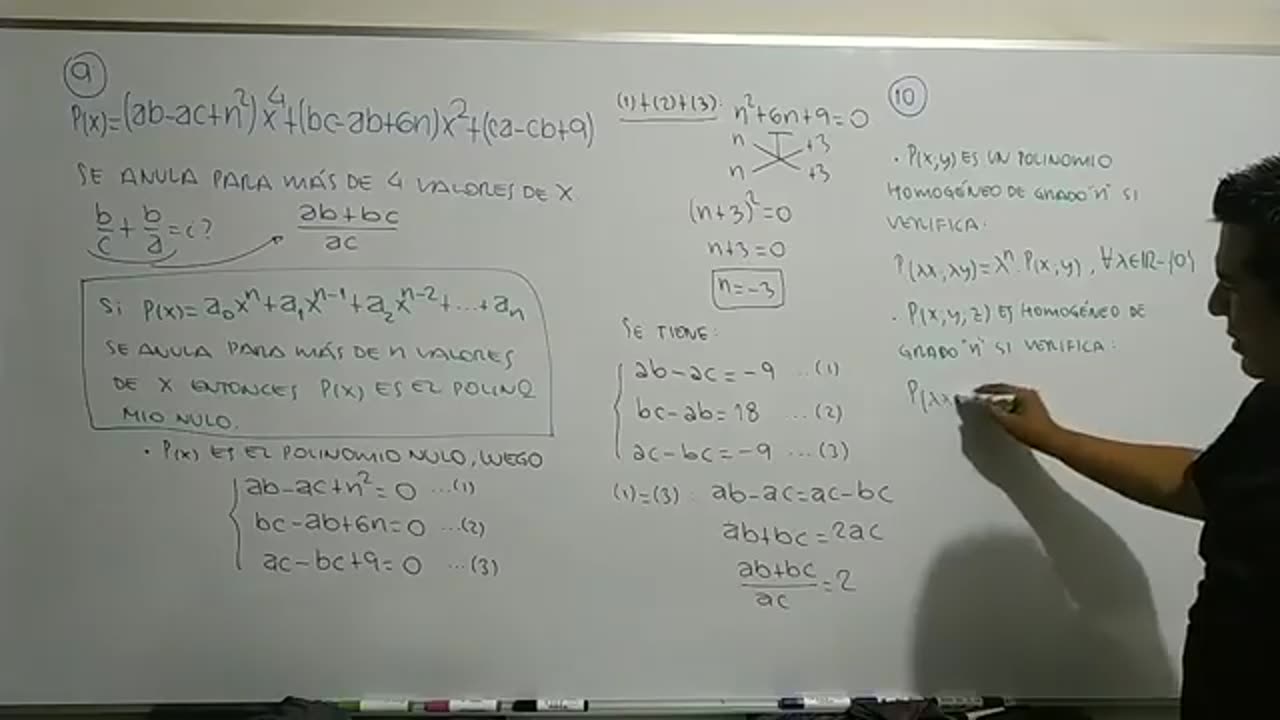 9
P(x)=(ab-ac+n²)x⁴+(bc-ab+6n)x²+(ca-cb+9)
SE ANULA PARA MÁS DE 4 VALORES DE X
b/c + b/a = ¿?
(ab+bc)/ac
Si P(x)=a₀xⁿ+a₁xⁿ⁻¹+a₂xⁿ⁻²+...+aₙ
SE ANULA PARA MÁS DE n VALORES
DE X ENTONCES P(x) ES EL POLINO
MIO NULO.
• P(x) ES EL POLINOMIO NULO, LUEGO
ab-ac+n²=0 ...(1)
bc-ab+6n=0 ...(2)
ac-bc+9=0 ...(3)
(1)+(2)+(3): n²+6n+9=0
n +3
n +3
(n+3)²=0
n+3=0
n=-3
SE TIENE:
ab-ac=-9 ...(1)
bc-ab=18 ...(2)
ac-bc=-9 ...(3)
(1)=(3): ab-ac=ac-bc
ab+bc=2ac
(ab+bc)/ac=2
10
• P(x,y) ES UN POLINOMIO
HOMOGÉNEO DE GRADO "n" SI
VERIFICA:
P(λx,λy)=λⁿ.P(x,y), ∀λ∈ℝ-{0}
• P(x,y,z) ES HOMOGÉNEO DE
GRADO "n" SI VERIFICA:
P(λx